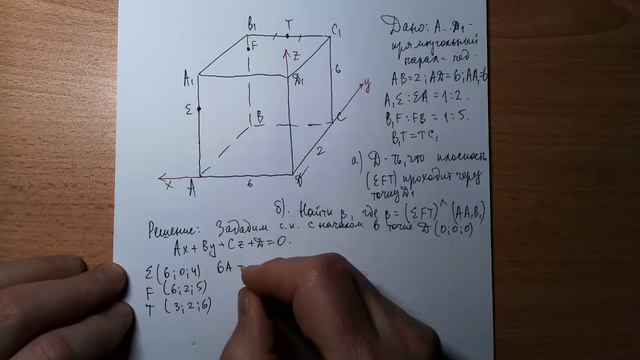 B₁ T C₁
F
z
A₁ D₁ 6
y
E
B
C
2
x A 6 D
Дано: A...D₁ -
прямоугольный
парал-пед.
AB=2; AD=6; AA₁=6
A₁E : EA = 1:2.
B₁F : FB = 1:5.
B₁T=TC₁
а) Д-ть, что плоскость
(EFT) проходит через
точку D₁
б). Найти β, где β = (EFT) ^ (AA₁B₁)
Решение: Зададим с.к. с началом в точке D (0;0;0)
Ax + By + Cz + D = 0.
E (6; 0; 4) 6A -
F (6; 2; 5)
T (3; 2; 6)